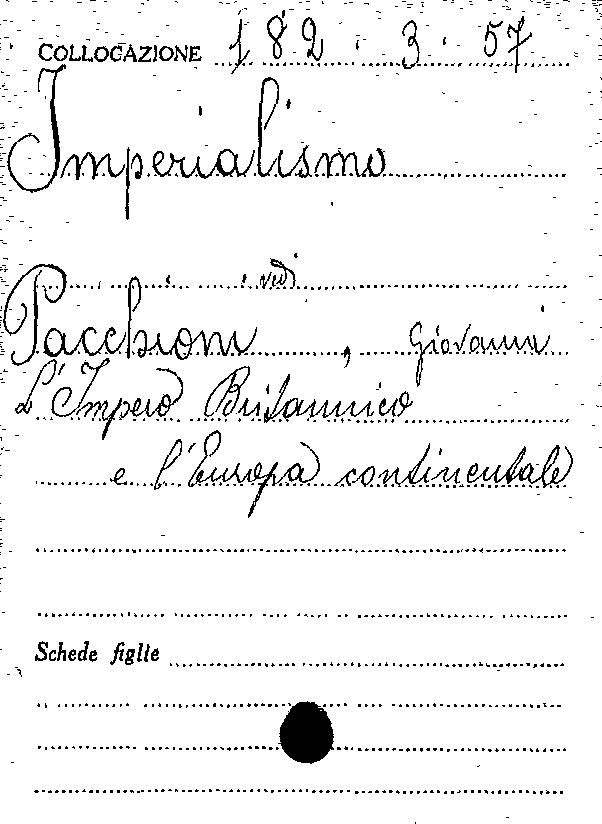 COLLOCAZIONE 182.3.57
Imperialismo
vedi
Pacchioni, Giovanni
L'Impero Britannico
e l'Europa continentale
Schede figlie